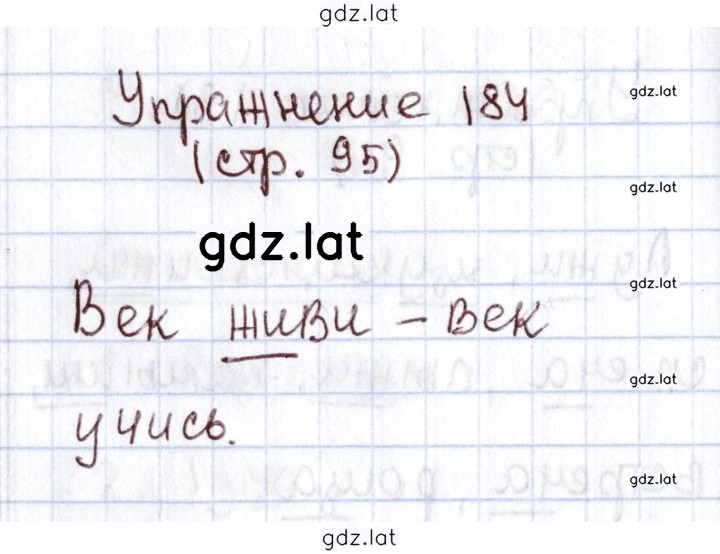 gdz.lat
Упражнение 184
gdz.lat
(стр. 95)
gdz.lat
gdz.lat
Век живи – век
gdz.lat
gdz.lat
учись.
gdz.lat
gdz.lat